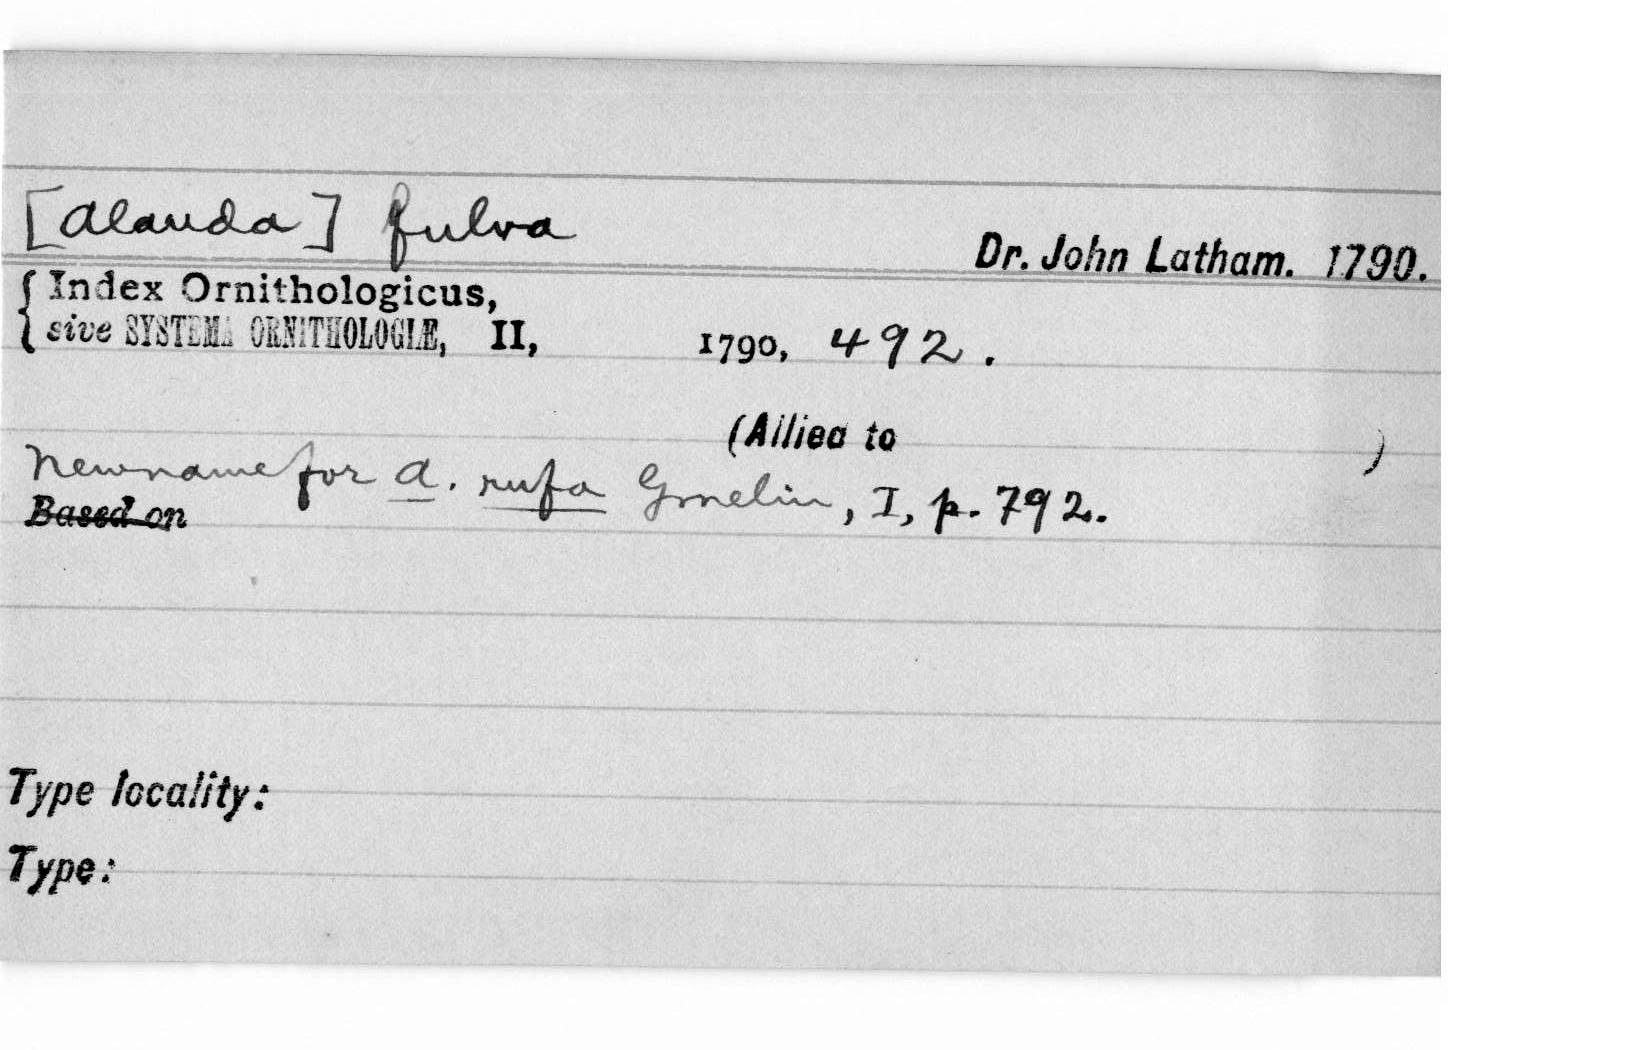 [Alauda] fulva
Dr. John Latham. 1790.
{ Index Ornithologicus,
sive SYSTEMA ORNITHOLOGIÆ, II, 1790, 492.
(Allied to )
New name for A. rufa Gmelin, I, p. 792.
Based on
Type locality:
Type: